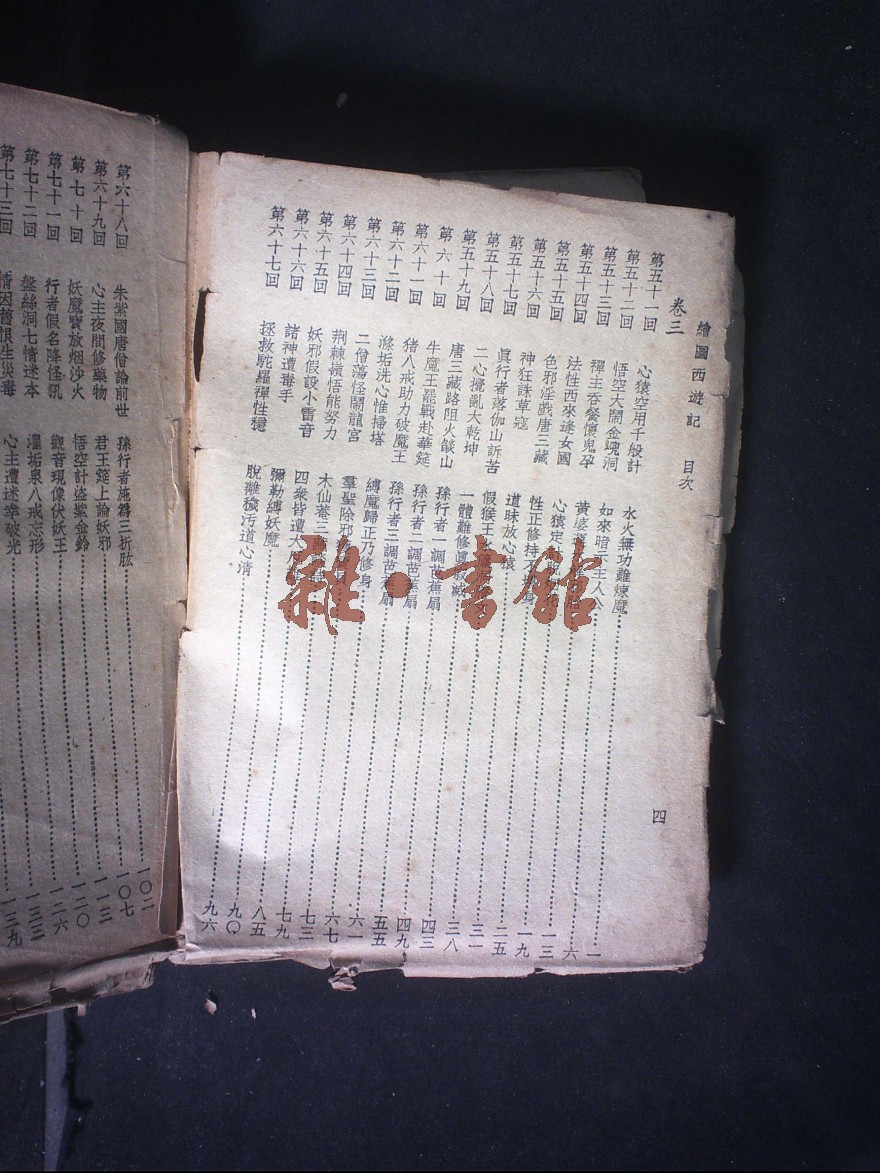 繪圖西遊記　目次　四
卷三
第五十一回　心猿空用千般計　水火無功難煉魔　一
第五十二回　悟空大鬧金㠕洞　如來暗示主人公　六
第五十三回　禪主吞餐懷鬼孕　黃婆　一三
第五十四回　法性西來逢女國　心猿定　一九
第五十五回　色邪淫戲唐三藏　性正修持不壞身　二五
第五十六回　神狂誅草寇　道昧放心猿　三一
第五十七回　眞行者落伽山訴苦　假猴王　三八
第五十八回　二心攪亂大乾坤　一體難修眞寂滅　四三
第五十九回　唐三藏路阻火燄山　孫行者一調芭蕉扇　四九
第六十回　牛魔王罷戰赴華筵　孫行者二調芭蕉扇　五五
第六十一回　猪八戒助力破魔王　孫行者三調芭蕉扇　六一
第六十二回　滌垢洗心惟掃塔　縛魔歸正乃修身　六七
第六十三回　二僧蕩怪鬧龍宮　羣聖除邪　七三
第六十四回　荆棘嶺悟能努力　木仙菴三　七九
第六十五回　妖邪假設小雷音　四衆皆遭大　八五
第六十六回　諸神遭毒手　彌勒縛妖魔　九〇
第六十七回　拯救駝羅禪性穩　脫離穢汚道心清　九六
第六十八回　朱紫國唐僧論前世　孫行者施爲三折肱　一〇二
第六十九回　心主夜間修藥物　君王筵上論妖邪　一〇七
第七十回　妖魔寶放烟沙火　悟空計盜紫金鈴　一一三
第七十一回　行者假名降怪犼　觀音現像伏妖王　一二〇
第七十二回　盤絲洞七情迷本　濯垢泉八戒忘形　一二六
第七十三回　情因舊恨生災毒　心主遭迷幸破光　一三三
一三九
雜·書館